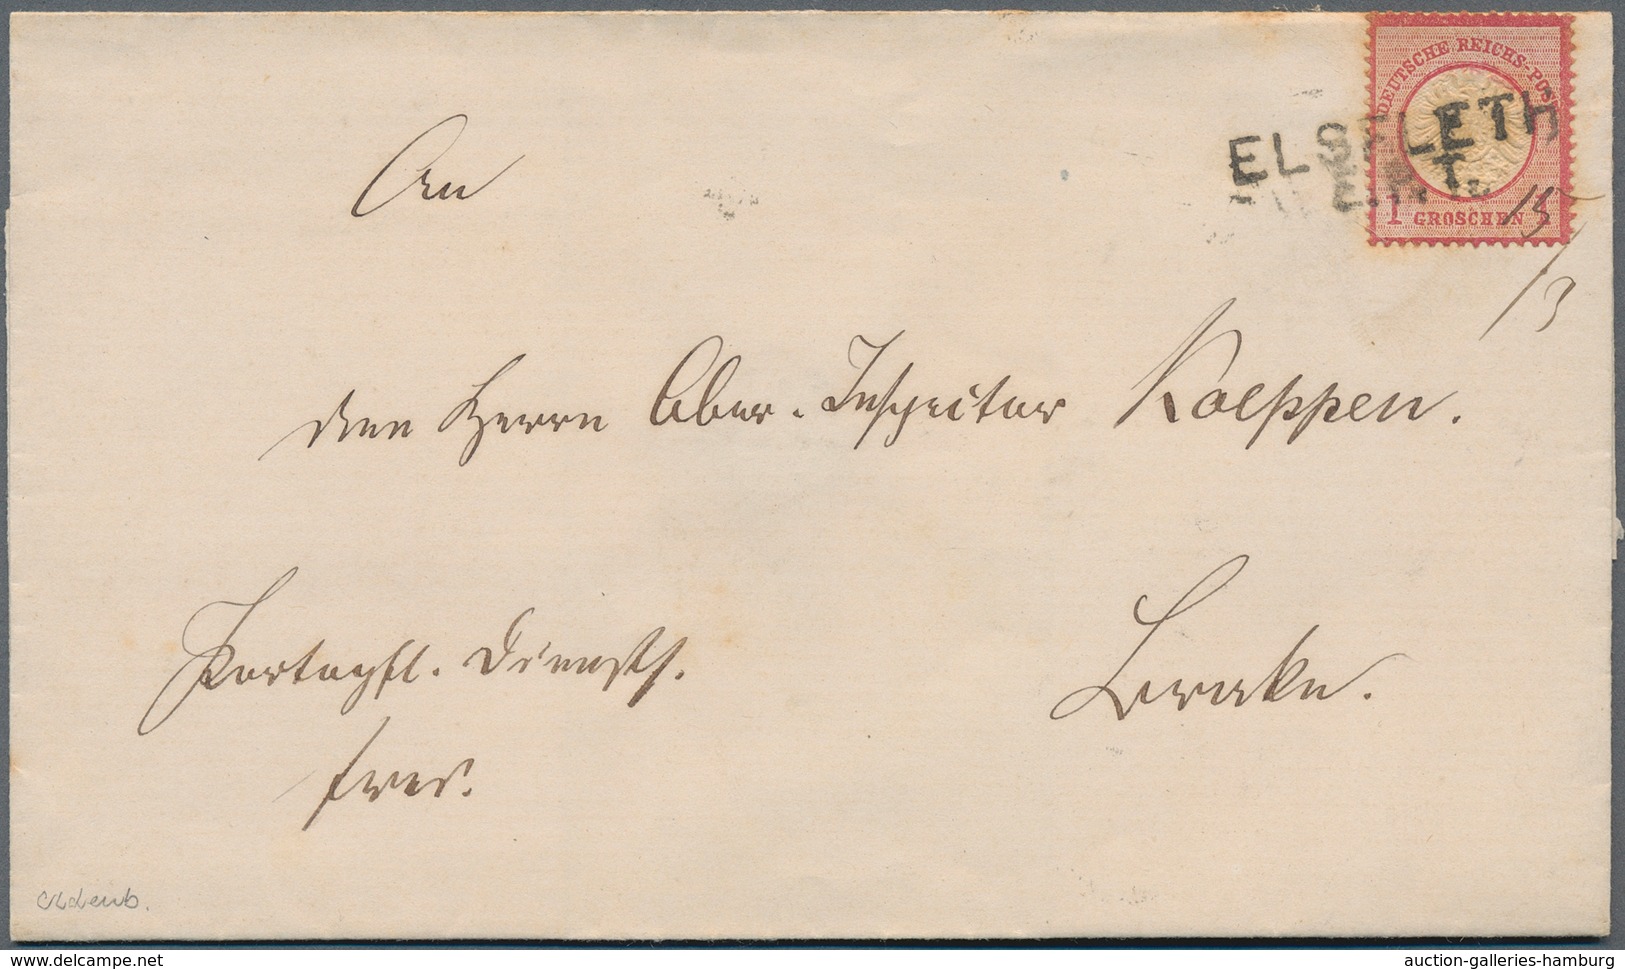 DEUTSCHE REICHS-POST
ELSFLETH
1 GROSCHEN 1
15
/3
An
den Herrn Ober-Inspector Koeppen.
Portopfl. DienSts.
frei.
Brake.
oldenb.
delcampe.net
auction-galleries-hamburg